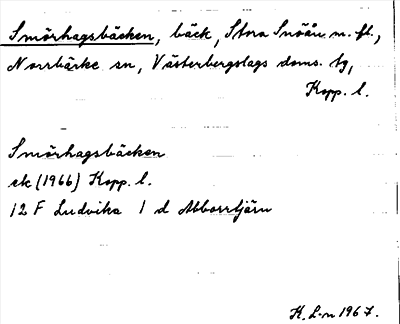 Smörhagsbäcken, bäck, Stora Snöån m. fl.,
Norrbärke sn, Västerbergslags doms. tg,
Kopp. l.
Smörhagsbäcken
ek (1966) Kopp. l.
12 F Ludvika 1 d Abborrtjärn
K. L-n 1967.